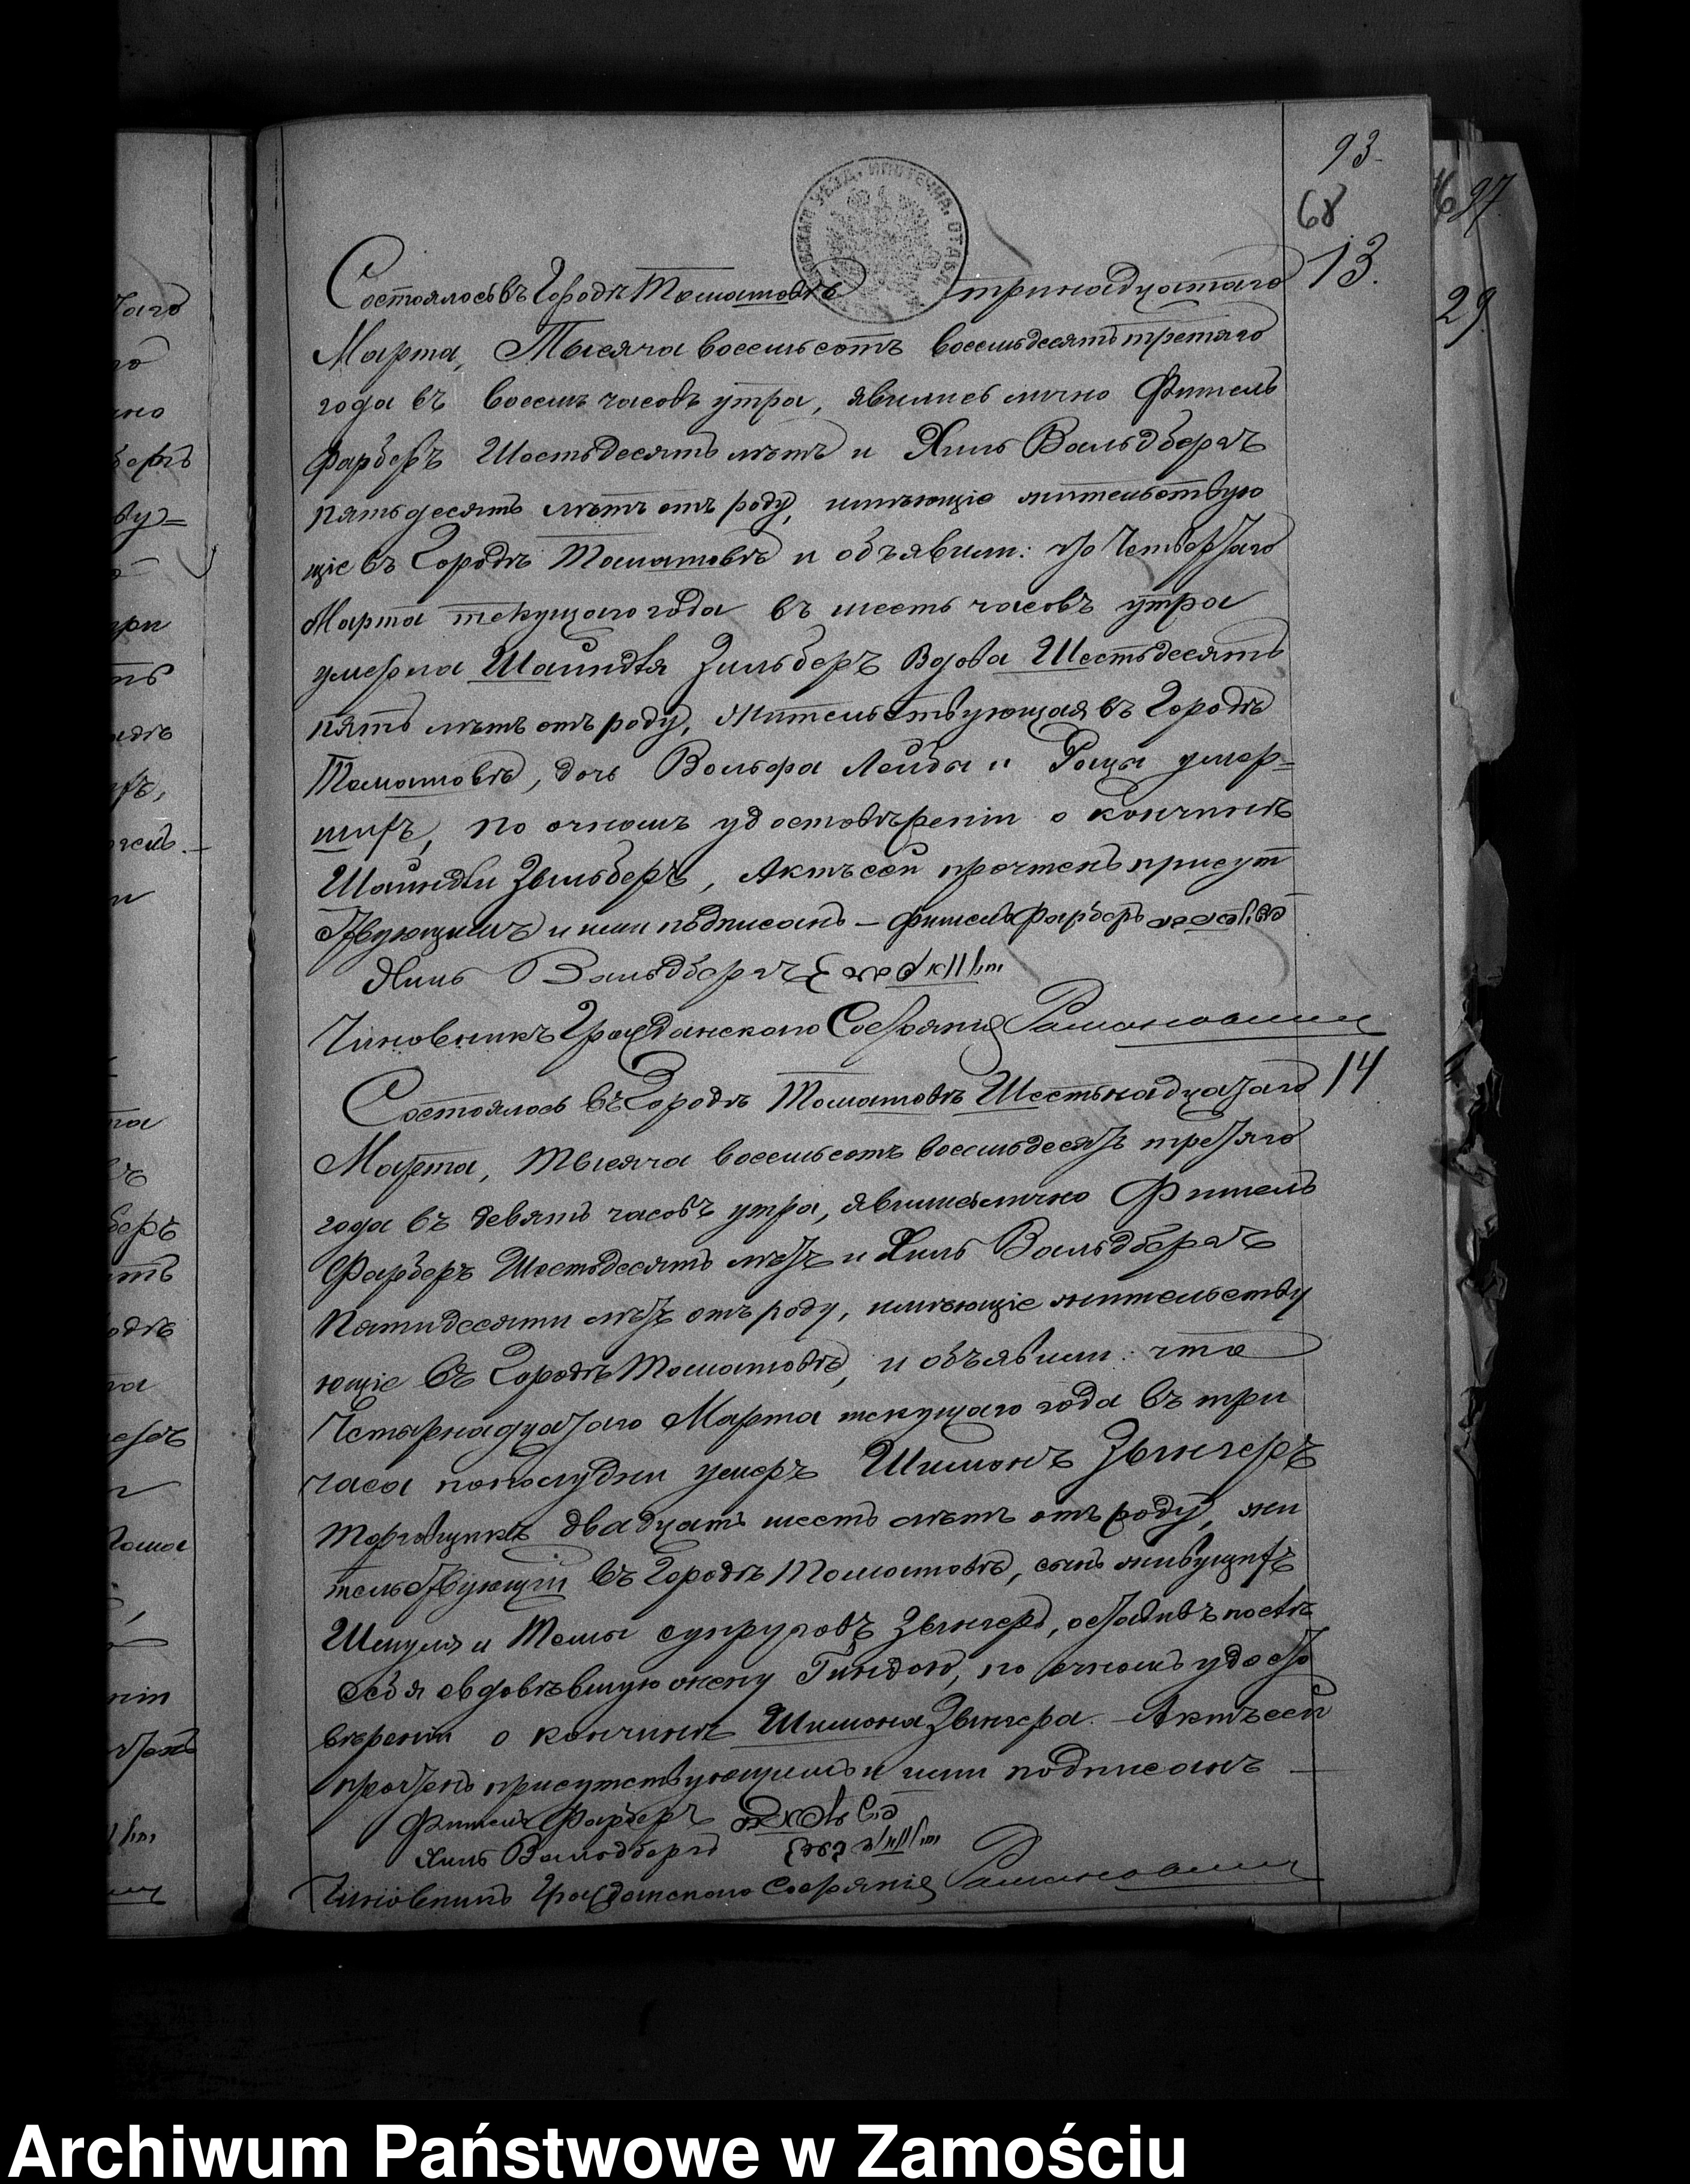 93.
68
№ 97
29
13.
Состоялось въ Городѣ Томашовѣ тринадцатаго
Марта, Тысяча восемьсотъ восемьдесятъ третяго
года въ восемь часовъ утра, явились лично Фишель
Фарберъ Шестьдесятъ лѣтъ и Хиль Вальдбергъ
пятьдесятъ лѣтъ отъ роду, имѣющіе жительствую
щіе въ Городѣ Томашовѣ и объявили: что Четвертаго
Марта текущаго года въ шесть часовъ утра
умерла Шаиндля Зильберъ Вдова Шестьдесятъ
пять лѣтъ отъ роду, жительствующая въ Городѣ
Томашовѣ, дочь Вольфа Лейбы и умер=
шихъ, По очномъ удостовѣреніи о кончинѣ
Шаиндли Зыльберъ, Актъ сей прочтенъ присут
ствующимъ и ими подписанъ — Фишель Фарберъ
Хиль Вальдбергъ
Чиновникъ Гражданскаго Состоянія
14
Состоялось въ Городѣ Томашовѣ Шестьнадцатаго
Марта, тысяча восемьсотъ восемьдесятъ третяго
года въ девять часовъ утра, явились лично Фишель
Фарберъ Шестьдесятъ лѣтъ и Хиль Вальдбергъ
Пятидесяти лѣтъ отъ роду, имѣющіе жительству
ющіе въ Городѣ Томашовѣ, и объявили: что
Четырнадцатаго Марта текущаго года въ три
часа пополудни умеръ Шимонъ Зынгеръ
Торговщикъ двадцать шесть лѣтъ отъ роду, жи
тельствующій въ Городѣ Томашовѣ, сынъ живущихъ
Шмуля и Темы супруговъ Зынгеръ, оставивъ послѣ
себя овдовѣвшую жену Гиндою, по очномъ удосто
вѣреніи о кончинѣ Шимона Зынгера. Актъ сей
прочтенъ присутствующимъ и ими подписанъ —
Фишель Фарберъ
Хиль Вальдбергъ
Чиновникъ Гражданскаго Состоянія
Archiwum Państwowe w Zamościu